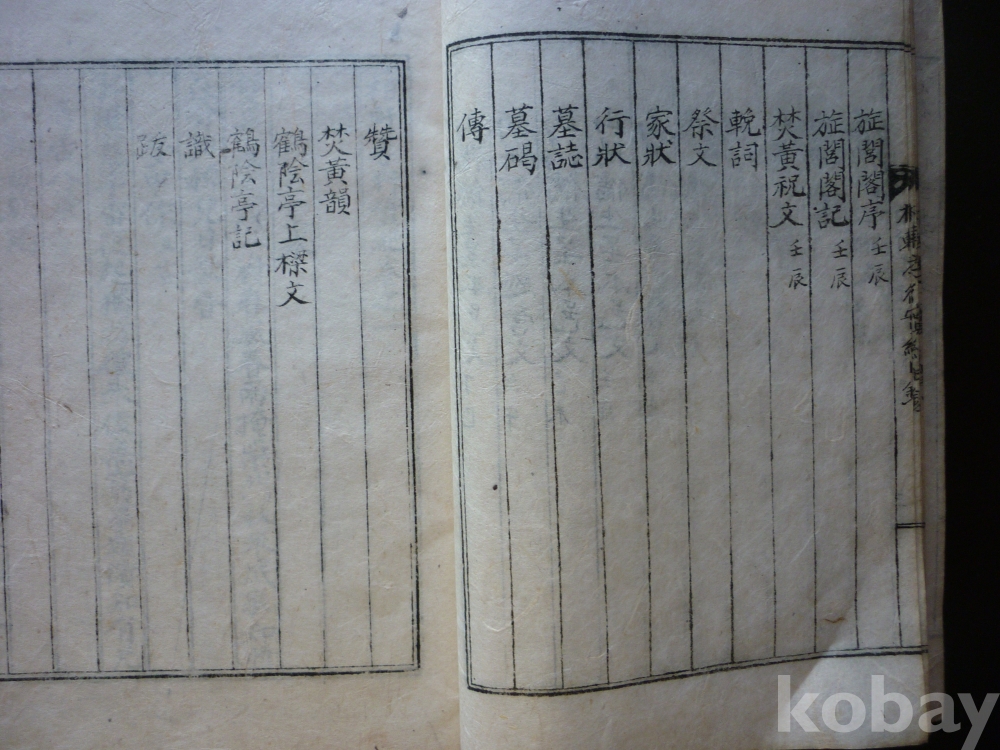 旌閭閣序 壬辰
旌閭閣記 壬辰
焚黃祝文 壬辰
輓詞
祭文
家狀
行狀
墓誌
墓碣
傳
贊
焚黃韻
鶴陰亭上樑文
鶴陰亭記
識
跋
kobay